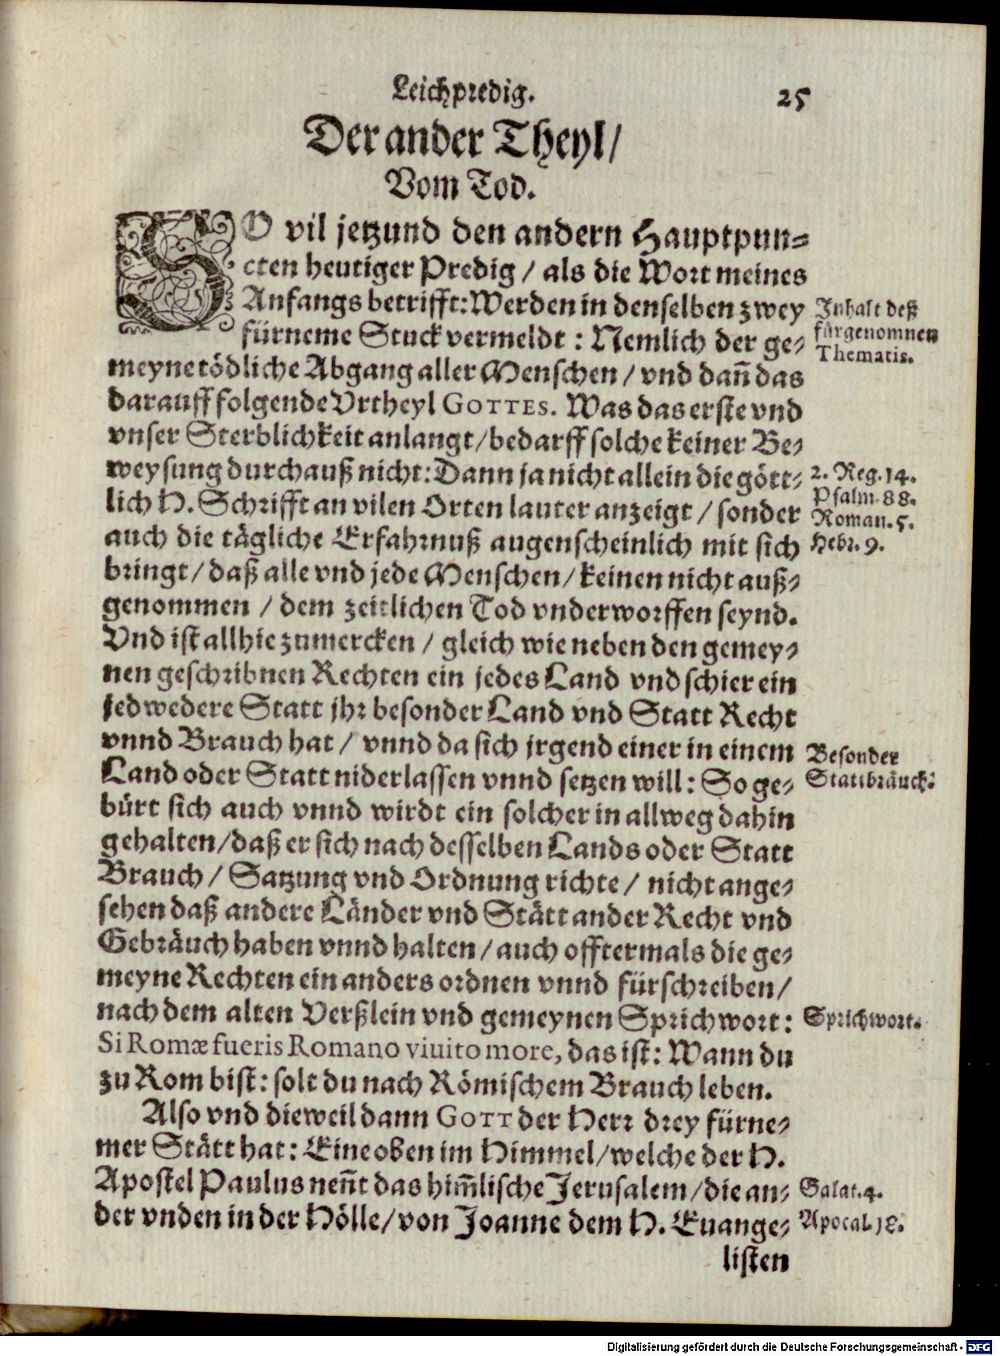 Leichpredig. 25
Der ander Theyl/
Vom Tod.
SO vil jetzund den andern Hauptpun-
cten heutiger Predig / als die Wort meines
Anfangs betrifft: Werden in denselben zwey
fürneme Stuck vermeldt : Nemlich der ge-
meyne tödliche Abgang aller Menschen / vnd dañ das
darauff folgende Vrtheyl GOTTES. Was das erste vnd
vnser Sterblichkeit anlangt / bedarff solche keiner Be-
weysung durchauß nicht: Dann ja nicht allein die gött-
lich H. Schrifft an vilen Orten lauter anzeigt / sonder
auch die tägliche Erfahrnuß augenscheinlich mit sich
bringt / daß alle vnd jede Menschen / keinen nicht auß-
genommen / dem zeitlichen Tod vnderworffen seynd.
Vnd ist allhie zumercken / gleich wie neben den gemey-
nen geschribnen Rechten ein jedes Land vnd schier ein
jedwedere Statt jhr besonder Land vnd Statt Recht
vnnd Brauch hat / vnnd da sich jrgend einer in einem
Land oder Statt niderlassen vnnd setzen will: So ge-
bürt sich auch vnnd wirdt ein solcher in allweg dahin
gehalten / daß er sich nach desselben Lands oder Statt
Brauch / Satzung vnd Ordnung richte / nicht ange-
sehen daß andere Länder vnd Stätt ander Recht vnd
Gebräuch haben vnnd halten / auch offtermals die ge-
meyne Rechten ein anders ordnen vnnd fürschreiben /
nach dem alten Verßlein vnd gemeynen Sprichwort:
Si Romæ fueris Romano viuito more, das ist: Wann du
zu Rom bist: solt du nach Römischem Brauch leben.
Also vnd dieweil dann GOTT der Herr drey fürne-
mer Stätt hat: Eine oben im Himmel / welche der H.
Apostel Paulus neñt das him̃lische Jerusalem / die an-
der vnden in der Hölle / von Joanne dem H. Euange-
listen
Inhalt deß
fürgenomnen
Thematis.
2. Reg. 14.
Psalm. 88.
Roman. 5.
Hebr. 9.
Besonder
Stattbräuch.
Sprichwort.
Galat. 4.
Apocal. 18.
Digitalisierung gefördert durch die Deutsche Forschungsgemeinschaft - DFG